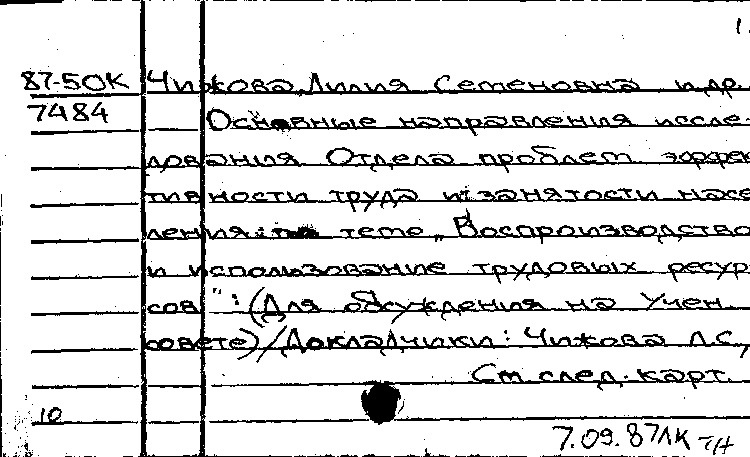 1.
87-50К Чижова, Лилия Семеновна и др.
7484 Основные направления иссле-
дования Отдела проблем эффек
тивности труда и занятости насе
ления: по теме „Воспроизводство
и использование трудовых ресур
сов": (Для обсуждения на Учен.
совете)/Докладчики: Чижова Л.С.,
См. след. карт.
10
7.09.87ЛК